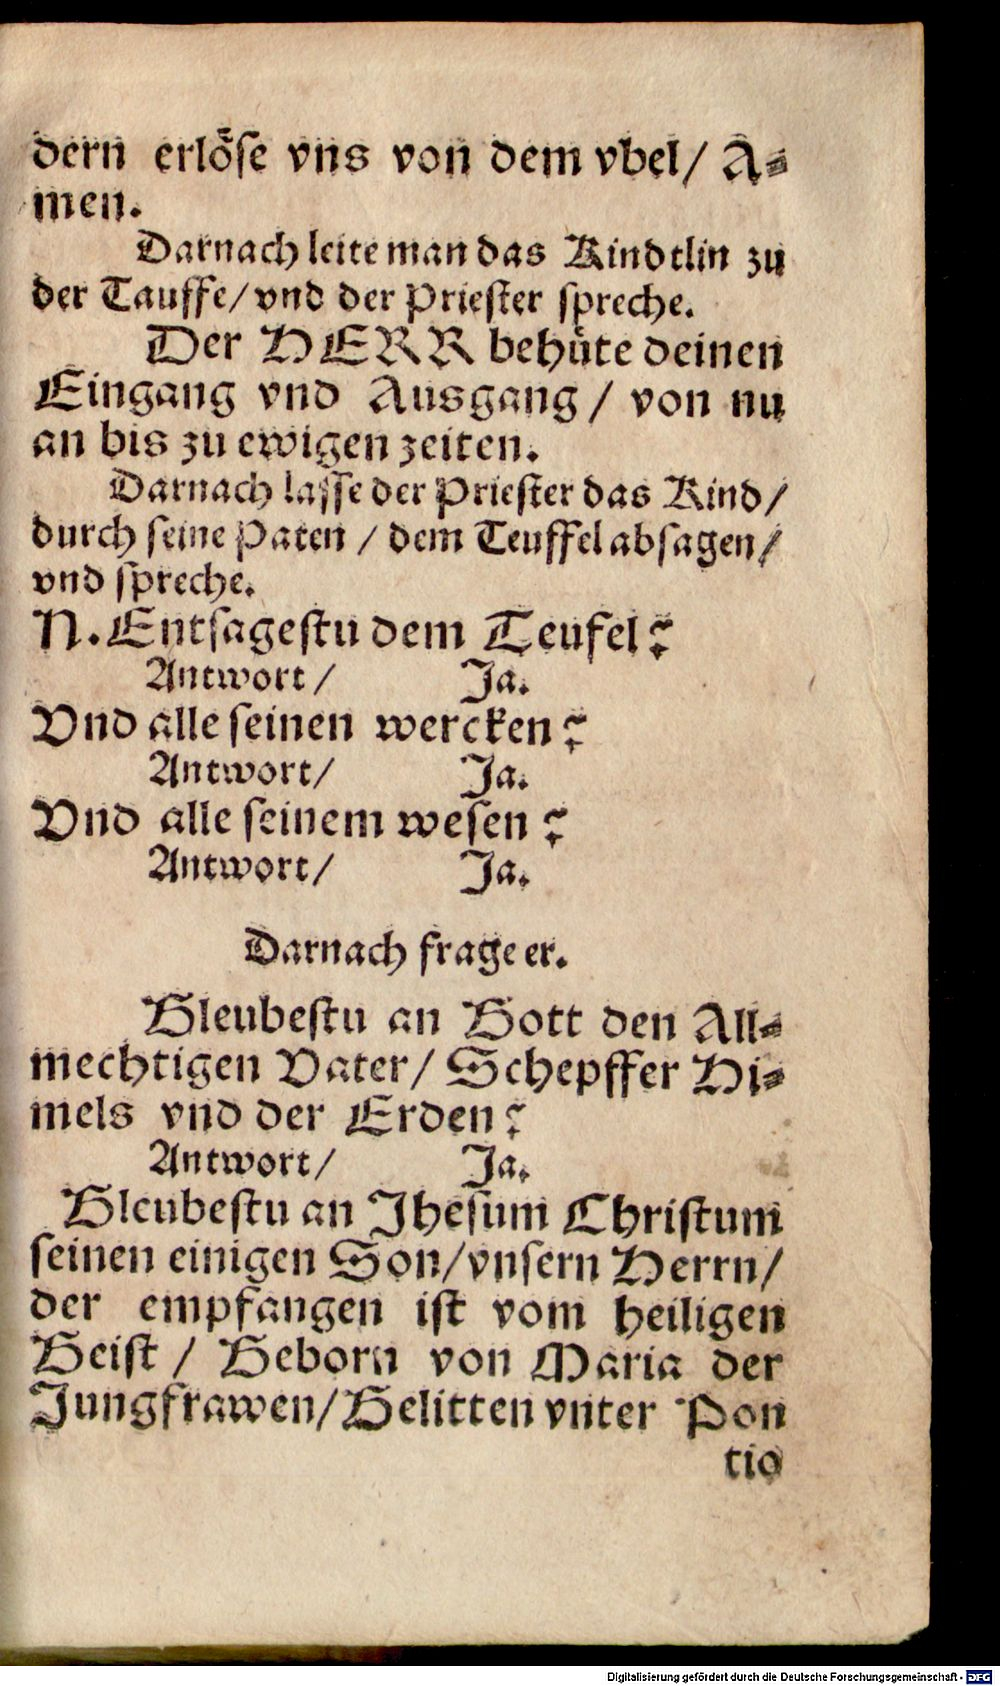 dern erlöse vns von dem vbel/ A⸗
men.
Darnach leite man das Kindtlin zu
der Tauffe/ vnd der Priester spreche.
Der HERR behüte deinen
Eingang vnd Ausgang / von nu
an bis zu ewigen zeiten.
Darnach lasse der Priester das Kind/
durch seine Paten / dem Teuffel absagen/
vnd spreche.
N. Entsagestu dem Teufel?
Antwort/ Ja.
Vnd alle seinen wercken?
Antwort/ Ja.
Vnd alle seinem wesen?
Antwort/ Ja.
Darnach frage er.
Gleubestu an Gott den All⸗
mechtigen Vater/ Schepffer Hi⸗
mels vnd der Erden?
Antwort/ Ja.
Gleubestu an Jhesum Christum
seinen einigen Son/ vnsern Herrn/
der empfangen ist vom heiligen
Geist / Geborn von Maria der
Jungfrawen/ Gelitten vnter Pon
tio
Digitalisierung gefördert durch die Deutsche Forschungsgemeinschaft - DFG